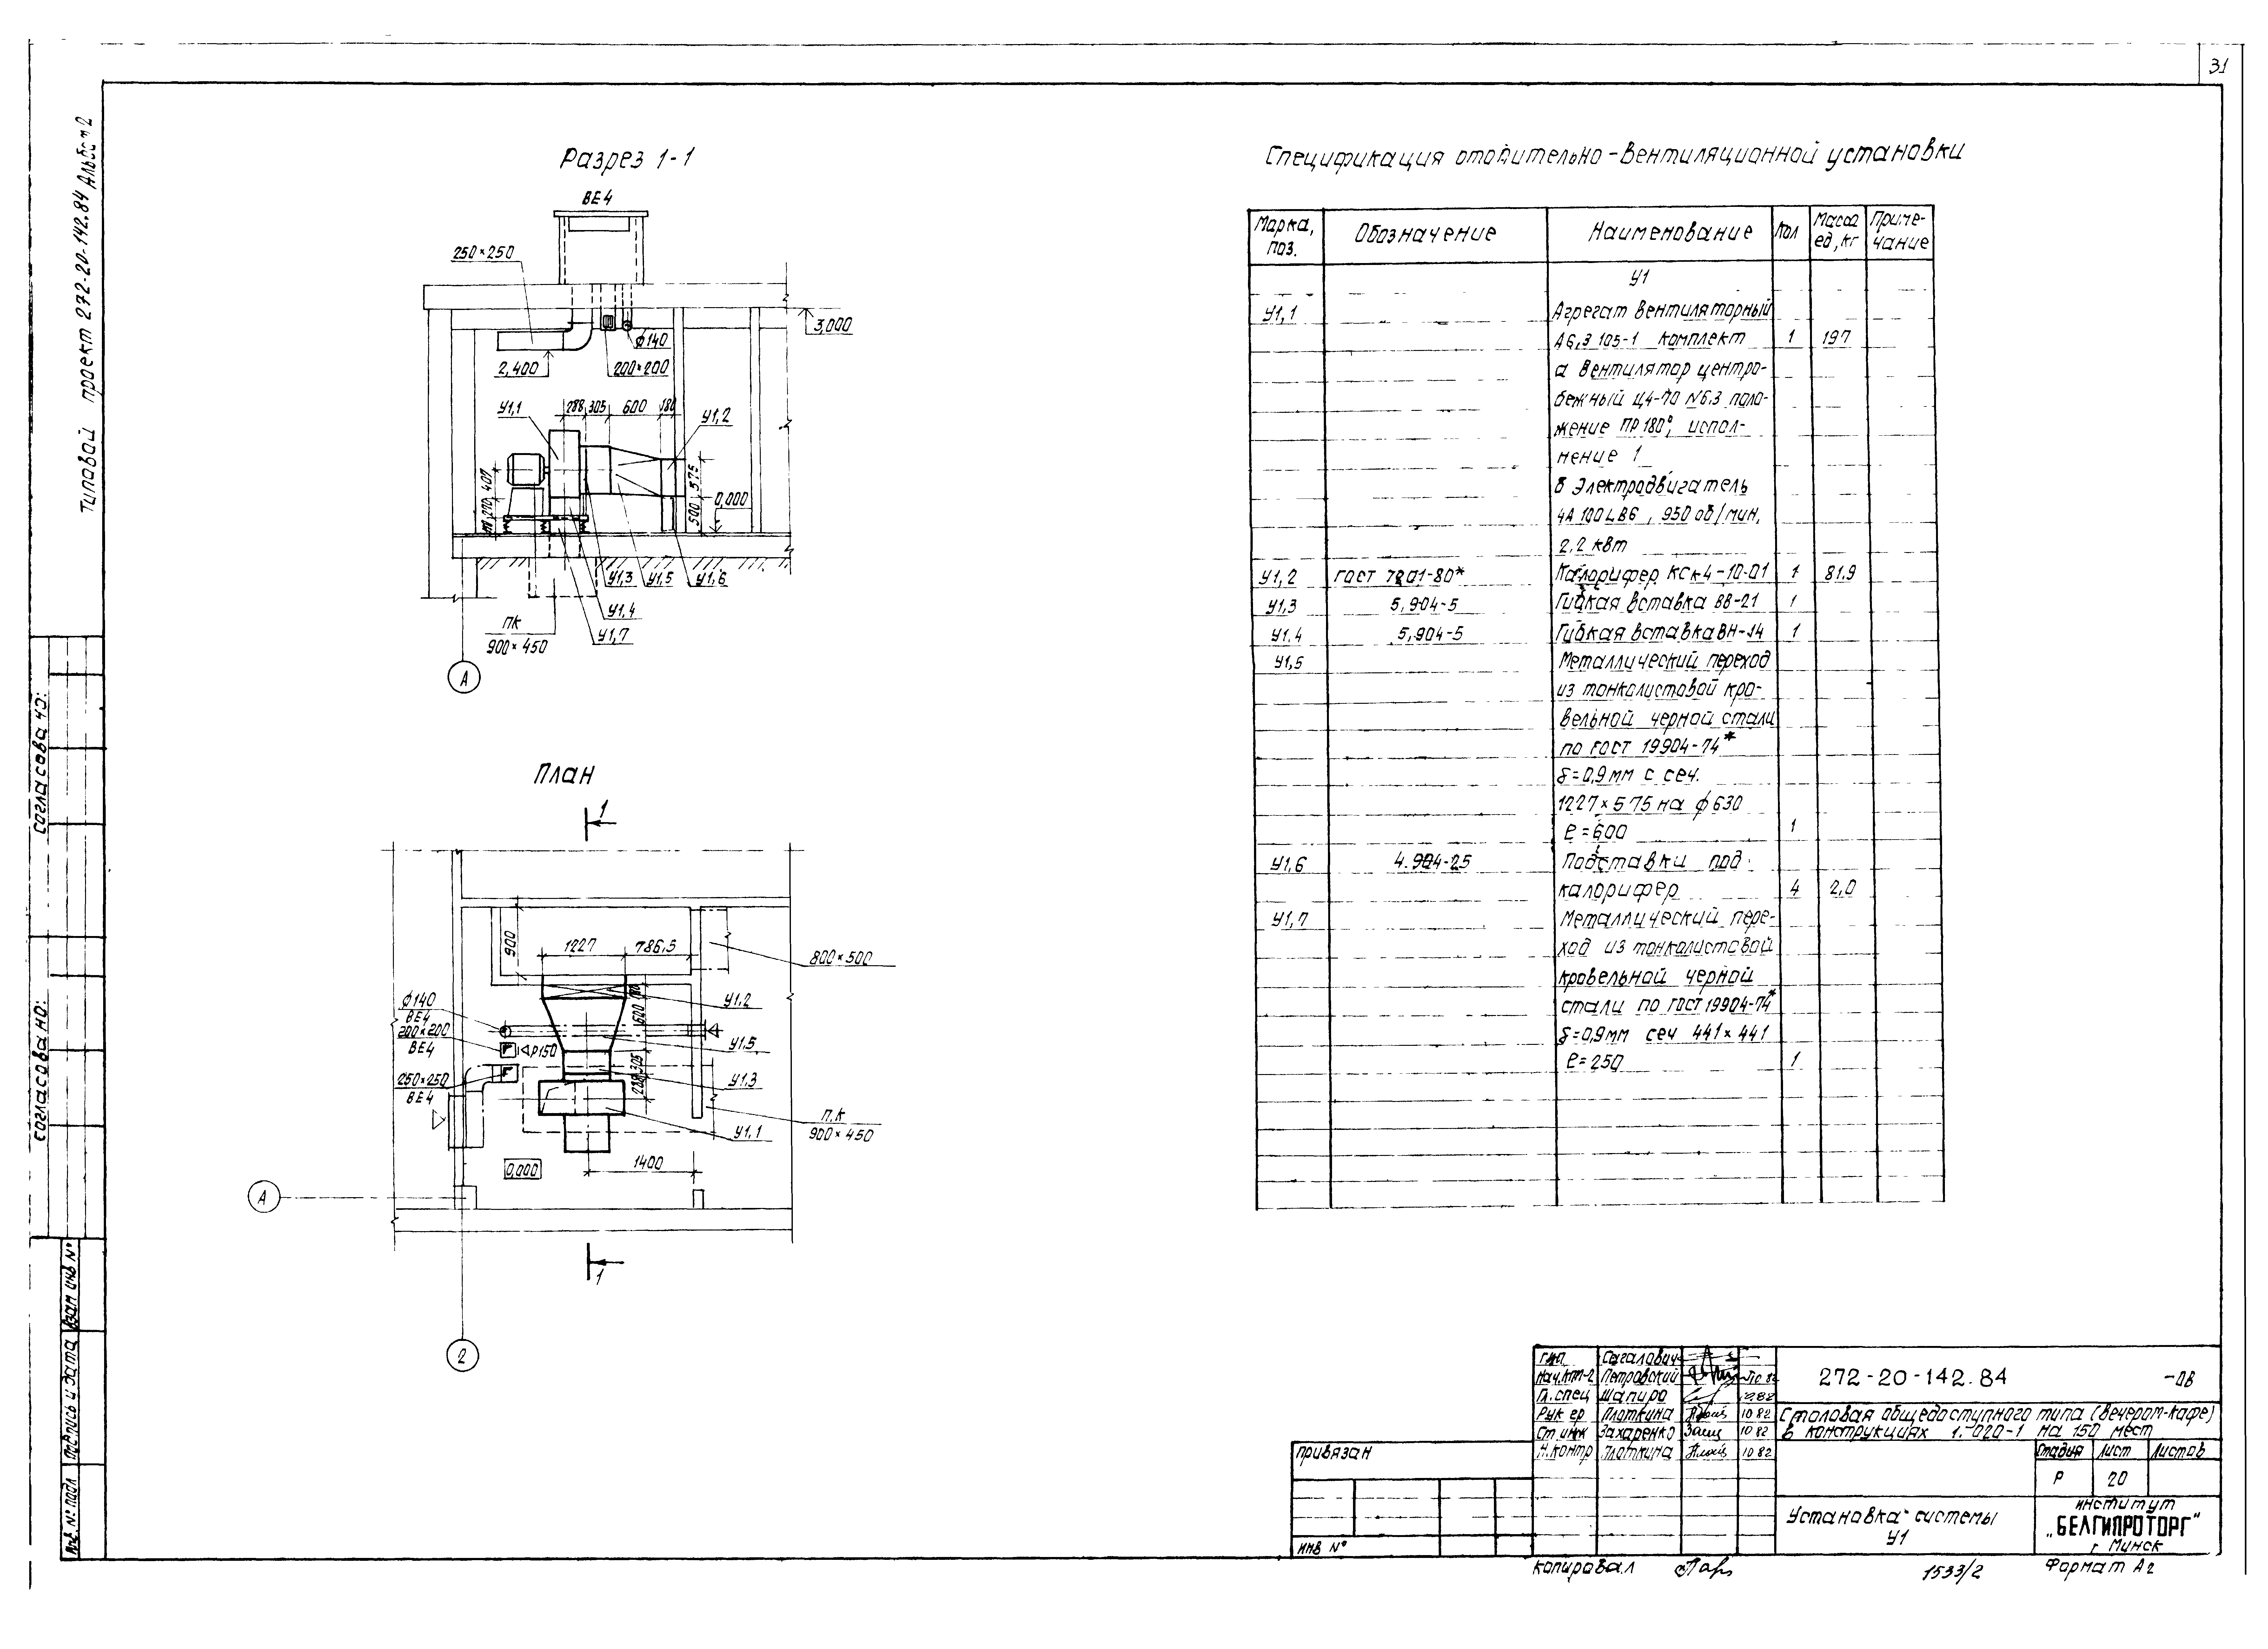 31
Типовой проект 272-20-142.84 Альбом 2
Разрез 1-1
ВЕ4
250×250
3,000
ф140
2,400
200×200
У1,1
288
305
600
180
У1,2
407
200
500
575
0,000
У1,3
У1,5
У1,6
У1,4
У1,7
ПК
900×450
А
План
1
900
1227
786,5
800×500
ф140
ВЕ4
200×200
ВЕ4
Р150
250×250
ВЕ4
180
600
У1,2
У1,5
305
288
У1,3
П.К
900×450
У1,1
1400
0,000
А
1
2
Спецификация отопительно-вентиляционной установки
Марка, поз.
Обозначение
Наименование
Кол
Масса ед, кг
Приме-чание
У1
У1,1 Агрегат вентиляторный
А6,3 105-1 комплект 1 197
а вентилятор центро-
бежный Ц4-70 №6.3 поло-
жение ПР 180°, испол-
нение 1
б электродвигатель
4А 100 L В6, 950 об/мин,
2,2 квт
У1,2 ГОСТ 7201-80* Калорифер КСк4-10-01 1 81.9
У1,3 5,904-5 Гибкая вставка ВВ-21 1
У1.4 5,904-5 Гибкая вставка ВН-14 1
У1,5 Металлический переход
из тонколистовой кро-
вельной черной стали
по ГОСТ 19904-74*
δ=0,9мм с сеч.
1227×575 на ф630
ℓ=600 1
У1,6 4.904-25 Подставки под
калорифер 4 2,0
У1,7 Металлический пере-
ход из тонколистовой
кровельной черной
стали по ГОСТ 19904-74*
δ=0,9мм сеч 441×441
ℓ=250 1
согласовано:
согласовано:
Взам инв №
Подпись и дата
Инв. № подл
Гип Сагалович
Нач.КТМ-2 Петровский 10.82
Гл. спец Шапиро 10 82
Рук гр Плоткина 10 82
Ст. инж Захаренко 10 82
Н.контр Плоткина 10 82
272-20-142.84 -ОВ
Столовая общедоступного типа (вечером-кафе)
в конструкциях 1.020-1 на 150 мест
Стадия Лист Листов
Р 20
Установка системы
У1
институт
„БЕЛГИПРОТОРГ"
г. Минск
привязан
инв №
копировал
1533/2
Формат А2